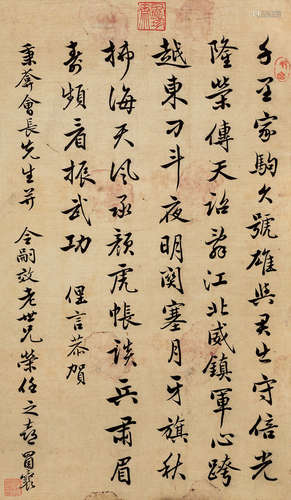 千里家駒久號雄與君出守倍光
隆榮傳天詔辭江北威鎮軍心跨
越東刁斗夜明関塞月牙旗秋
拂海天風承顏虎帳談兵肅眉
壽頻看振武功 俚言恭賀
會長先生并 令嗣老世兄榮任之喜